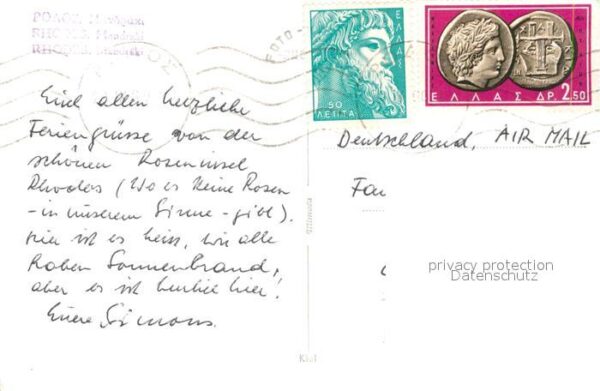 ΡΟΔΟΣ. Μανδράκι
RHODES. Mandraki
RHODOS. Mandraki
ΦΟΤΟ -
ΕΛΛΑΣ
50
ΛΕΠΤΑ
ΕΛΛΑΣ ΔΡ. 2.50
Euch allen herzliche
Feriengrüsse von der
schönen Roseninsel
Rhodos (wo es keine Rosen
- in unserem Sinne - gibt).
Hier ist es heiss, wir alle
haben Sonnenbrand,
aber es ist herrlich hier!
Eure Simons.
Deutschland, AIR MAIL
Fa
privacy protection
Datenschutz